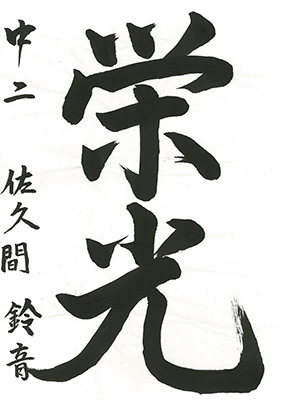 栄光
中二 佐久間 鈴音